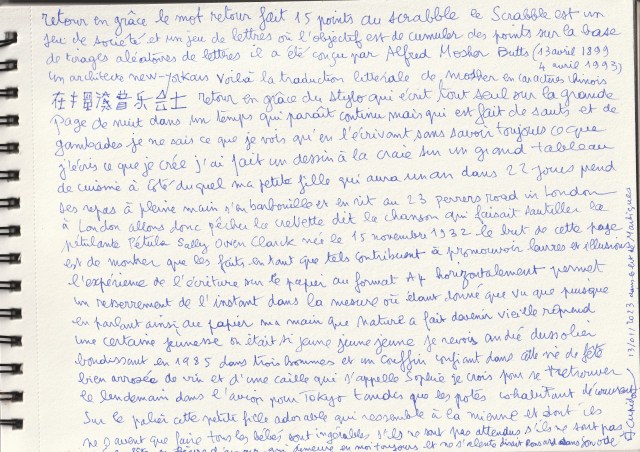 retour en grâce le mot retour fait 15 points au scrabble le Scrabble est un
jeu de société et un jeu de lettres où l'objectif est de cumuler des points sur la base
de tirages aléatoires de lettres il a été conçu par Alfred Mosher Butts (13 avril 1899
4 avril 1993)
un architecte new-yorkais Voilà la traduction littérale de mosher en caractères chinois
音乐会士 retour en grâce du stylo qui écrit tout seul sur la grande
page de nuit dans un temps qui paraît continu mais qui est fait de sauts et de
gambades je ne sais ce que je vois qu'en l'écrivant sans savoir toujours ce que
j'écris ce que je crée j'ai fait un dessin à la craie sur un grand tableau
de cuisine à côté duquel ma petite fille qui aura un an dans 22 jours prend
ses repas à pleine main s'en barbouille et en rit au 23 road in London
à London allons donc pêcher la crevette dit la chanson qui faisait sautiller la
pétulante Pétula Sally Owen Clarck née le 15 novembre 1932 le but de cette page
est de montrer que les faits en tant que tels contribuent à promouvoir leurres en illusions
l'expérience de l'écriture sur le papier au format A4 horizontalement permet
un resserrement de l'instant dans la mesure où étant donné que vu que puisque
en parlant ainsi au papier ma main que nature a fait devenir vieille reprend
une certaine jeunesse on était si jaune jeune jeune je revois andré dussolier
bondissant en 1985 dans trois hommes et un couffin confiant dans une fête
bien arrosée de vin et d'une caille qui s'appelle Sophie je crois pour se retrouver
le lendemain dans l'avion pour Tokyo tandis que les potes cohabitant découvrent
Sur le palier cette petite fille adorable qui ressemble à la mienne et dont ils
ne savent que faire tous les bébés sont ingérables s'ils ne sont pas attendus s'ils ne sont pas
qui demeure en moi toujours et ne s'alente dirait Ronsard dans son ode
13/01/2023 Martigues